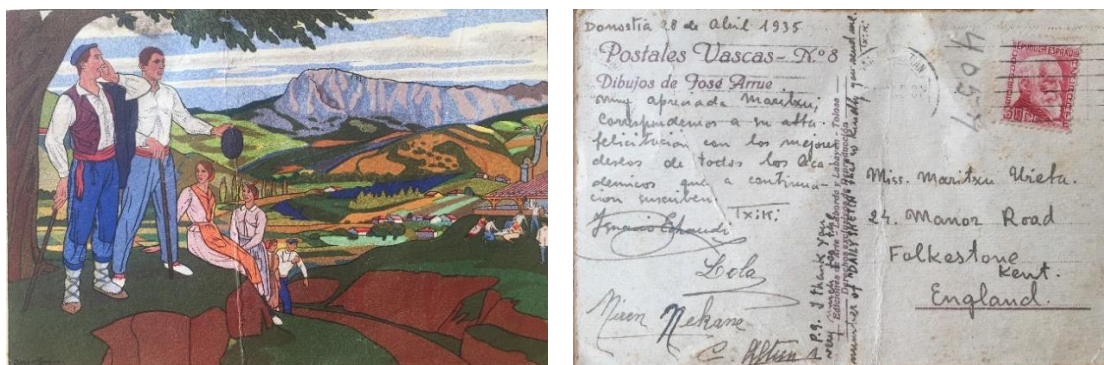 Donostia 28 de Abril 1935
Postales Vascas - N.º 8
Dibujos de José Arrue
muy apreciada Maritxu,
correspondemos a su atta.
felicitación con los mejores
deseos de todos los Aca-
démicos que a continua-
ción suscriben
Txiki
Lola
Miren Nekane
C.
P.S. I thank you
very much for the
number of "DAILY SKETCH" that so kindly you send me.
Txiki
Laborde y Labayen - Tolosa
4057
Miss. Maritxu Urreta.
24. Manor Road
Folkestone
Kent.
England.